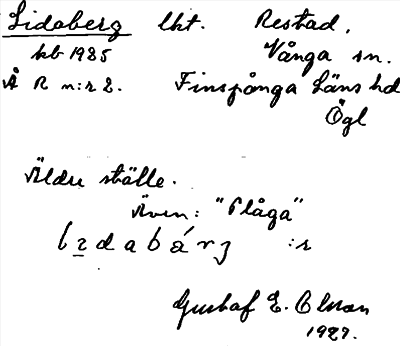 Lidaberg lkt. Restad,
kb 1925 Vånga sn.
Å R n:r 2. Finspånga Läns hd
Ögl
Äldre ställe.
Även: "Plåga"
:r
Gustaf E. Olsson
1927.